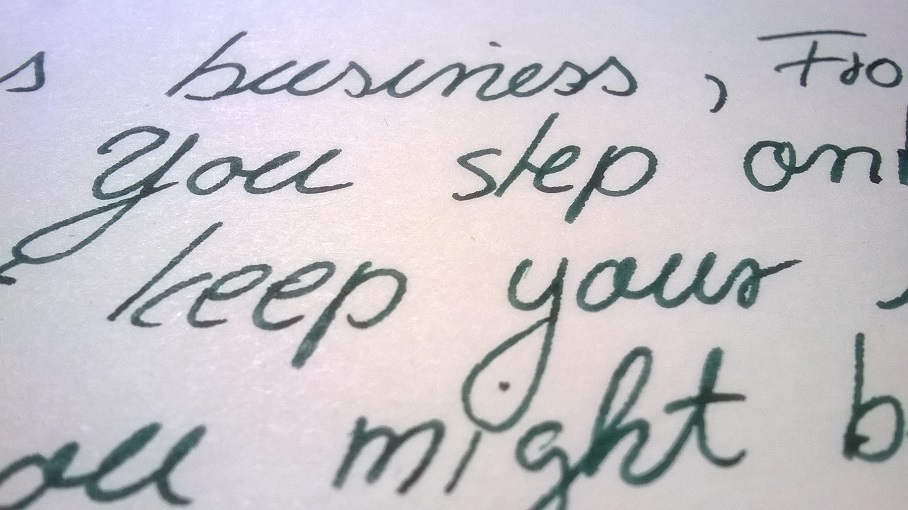 s business, Fro
You step ont
keep your
ou might b